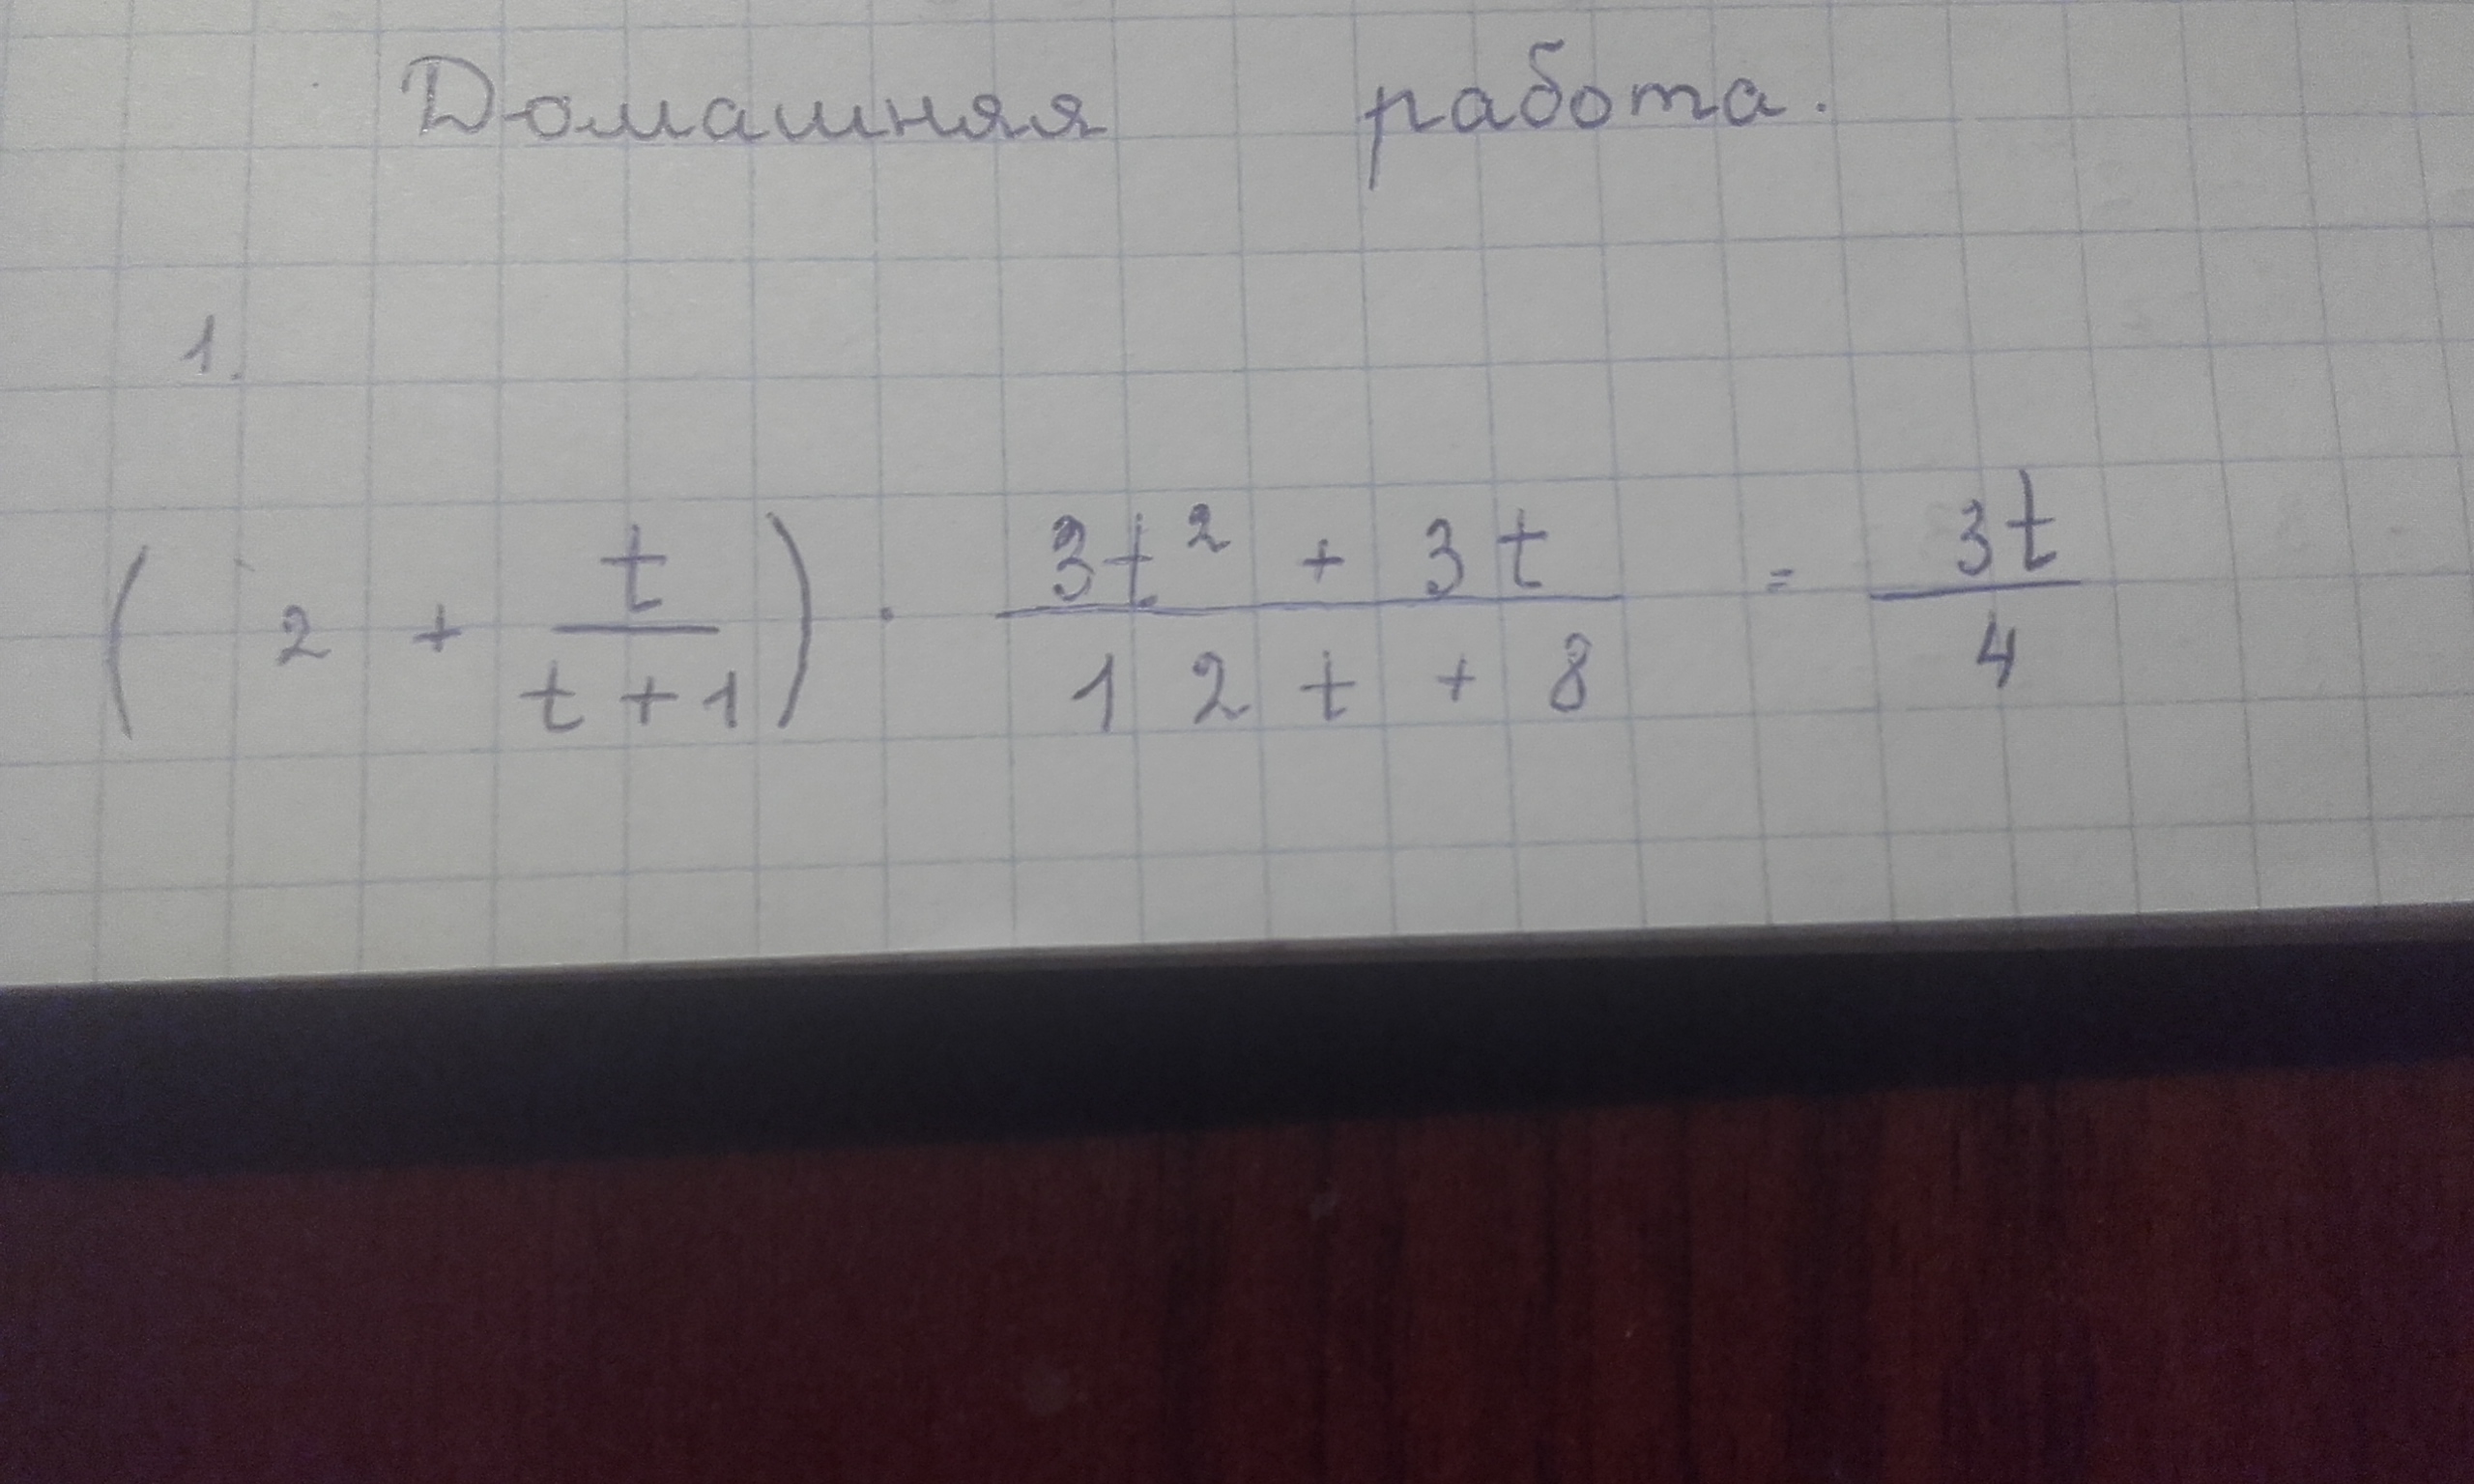 Домашняя работа.
1.
(2 + t/(t+1)) · (3t² + 3t)/(12t + 8) = 3t/4